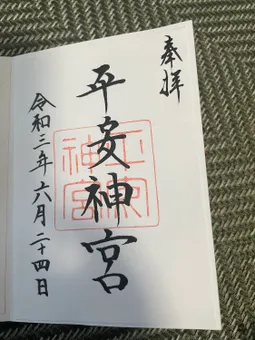 奉拝
平安神宮
神宮
令和三年六月二十四日